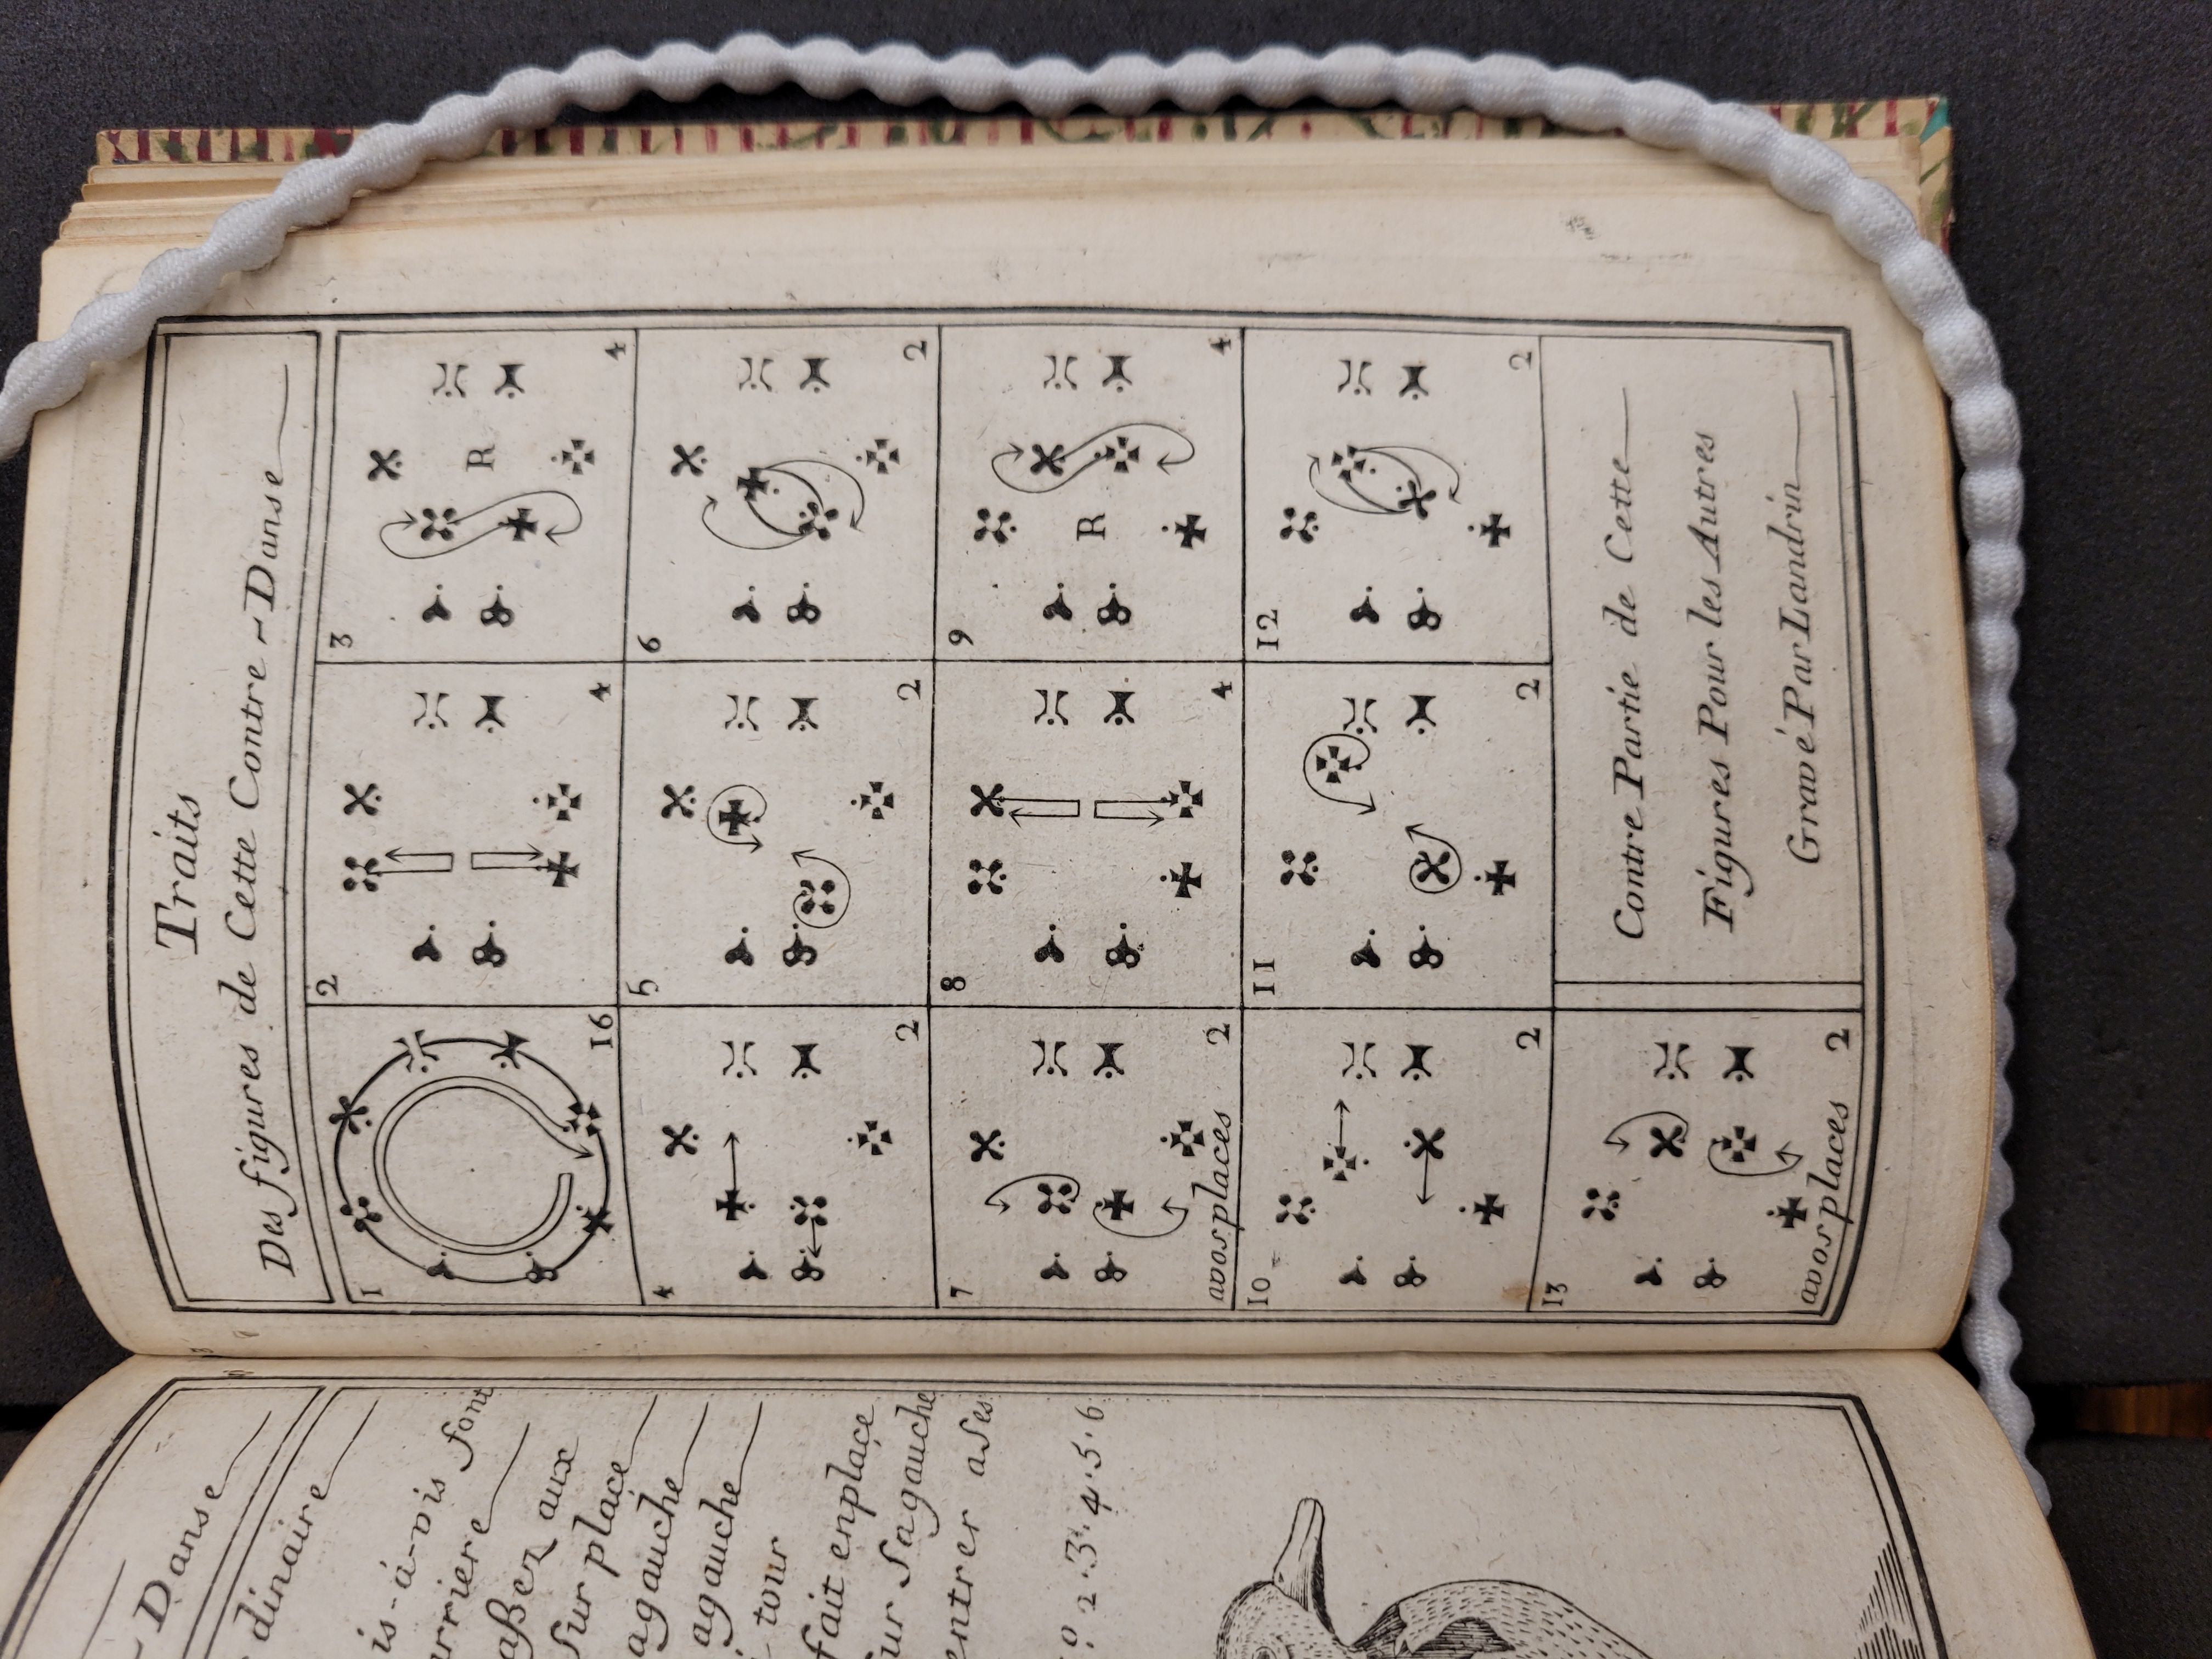 Traits
Des figures de Cette Contre ~ Danse
1
16
2
4
3
R
4
4
2
5
2
6
2
7
avosplaces
2
8
4
9
R
4
10
2
11
2
12
2
13
avosplaces
2
Contre Partie de Cette
Figures Pour les Autres
Gravé Par Landrin
Danse
dinaire
is-á-vis font
arriere
aßez aux
sur place
agauche
agauche
tour
fait enplace
sur sagauche
entrer ases
2.3.4.5.6